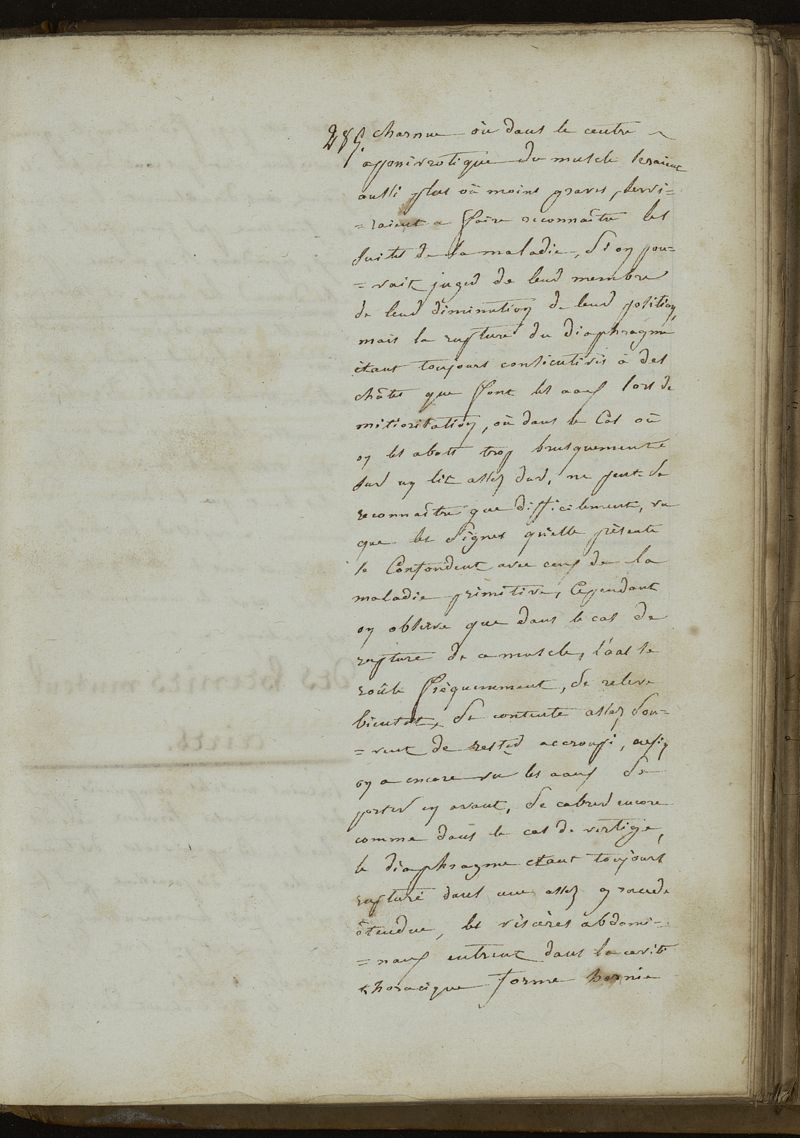 285. charnue où dans le centre
apponivrotique du muscle seraient
aussi plus où moins graves, servi=
=raient a faire reconnaitre les
suites de la maladie, Si on pou-
=vait juger de leur nombre
de leur diminution de leur position,
mais la rupture du diaphragme
étant toujours consicutives à des
chûtes que font les aaux lors de
où dans le Cas où
on les abatt trop brusquement
sur un lit assez dur, ne peut se
reconnaître que difficilement, vu
que les Signes qu'elle présente
se Confondent avec ceux de la
maladie primitive, Cependant
on observe que dans le cas de
rupture de ce muscle, l'aal se
roûle fréquemment, se releve
bientôt, se contente assez sou-
=vent de rester accroupi,
on a encore vu les aaux se
porter en avant, se cabrer encore
comme dans le cas de vertige,
le diaphragme étant toujours
rupturé dans une assez grande
étendue, les viscères abdomi-
=naux entrent dans la cavité
thoracique forme hernie